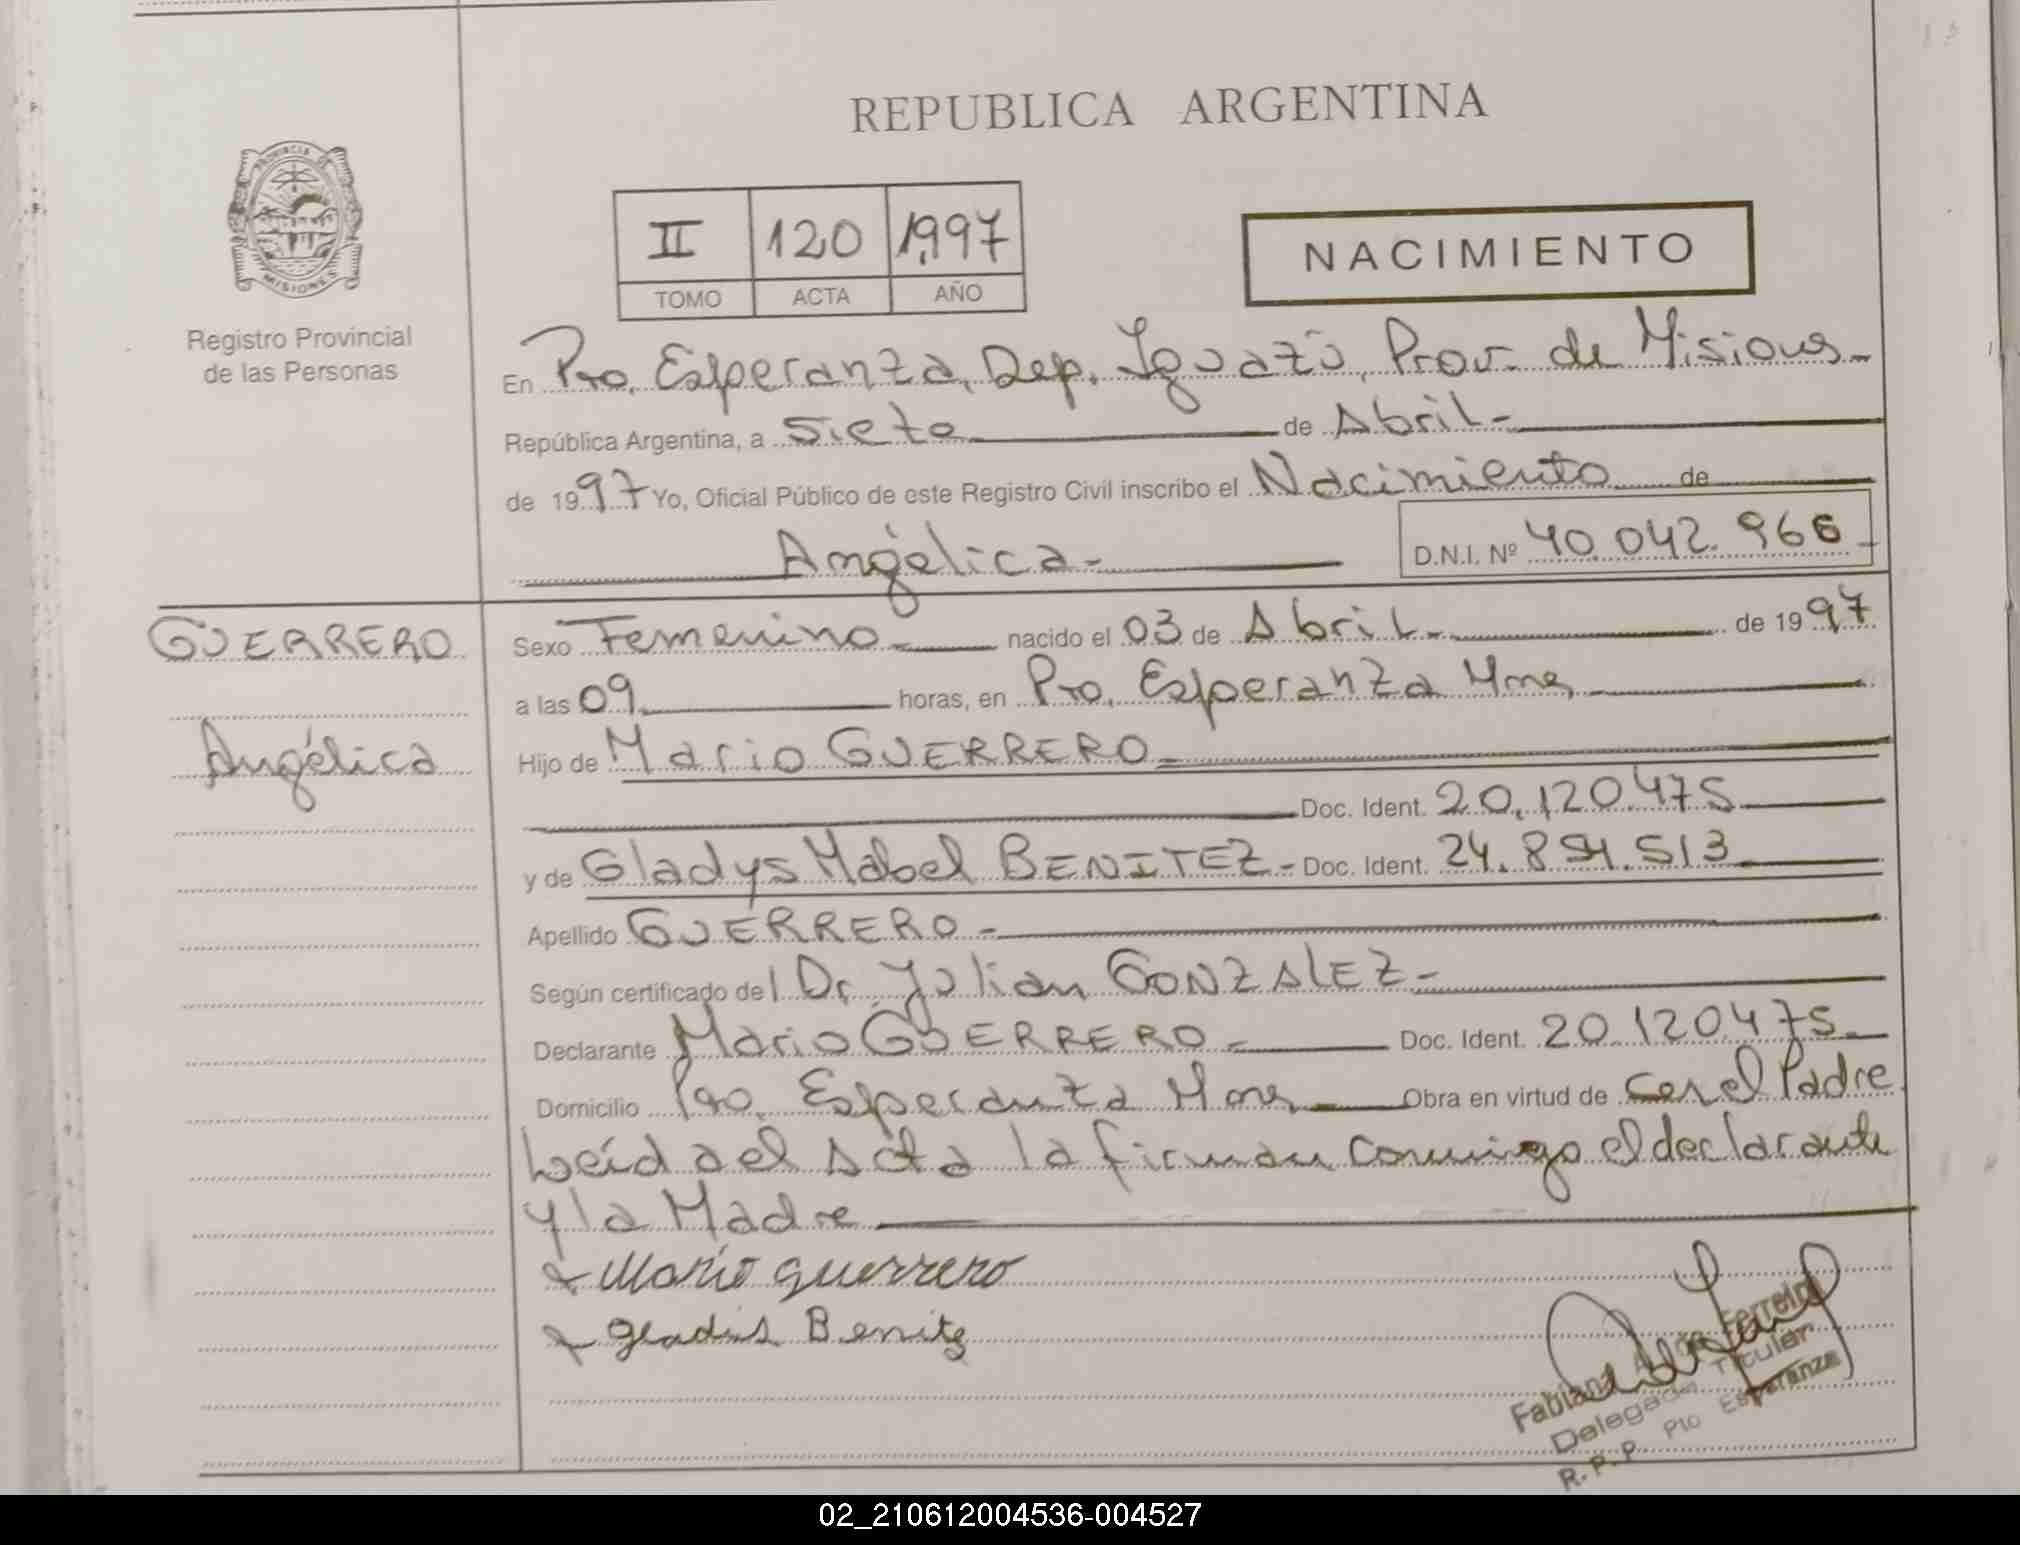 REPUBLICA ARGENTINA
PROVINCIA DE
MISIONES
Registro Provincial
de las Personas
II 120 1,997
TOMO ACTA AÑO
NACIMIENTO
En Pto. Esperanza, Dep. Iguazú, Prov. de Misiones
República Argentina, a siete de Abril
de 1997 Yo, Oficial Público de este Registro Civil inscribo el Nacimiento de
Angélica D.N.I. Nº 40.042.966
GUERRERO
Angélica
Sexo Femenino nacido el 03 de Abril de 1997
a las 09 horas, en Pto. Esperanza Mnes
Hijo de Mario GUERRERO
Doc. Ident. 20.120.475
y de Gladys Mabel BENITEZ Doc. Ident. 24.891.513
Apellido GUERRERO
Según certificado del Dr. Julian GONZALEZ
Declarante Mario GUERRERO Doc. Ident. 20.120.475
Domicilio Pto. Esperanza Mnes Obra en virtud de ser el Padre
Leída el Acta la firman conmigo el declarante
y la Madre
Mario guerrero
gladis Benitez
Fabiana Ferreira
Delegada Titular
R.P.P. Pto Esperanza
02_210612004536-004527